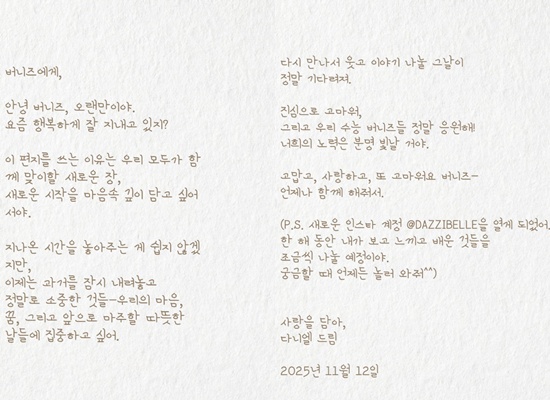 버니즈에게,
안녕 버니즈, 오랜만이야.
요즘 행복하게 잘 지내고 있지?
이 편지를 쓰는 이유는 우리 모두가 함
께 맞이할 새로운 장,
새로운 시작을 마음속 깊이 담고 싶어
서야.
지나온 시간을 놓아주는 게 쉽지 않겠
지만,
이제는 과거를 잠시 내려놓고
정말로 소중한 것들—우리의 마음,
꿈, 그리고 앞으로 마주할 따뜻한
날들에 집중하고 싶어.
다시 만나서 웃고 이야기 나눌 그날이
정말 기다려져.
진심으로 고마워,
그리고 우리 수능 버니즈들 정말 응원해!
너희의 노력은 분명 빛날 거야.
고맙고, 사랑하고, 또 고마워요 버니즈—
언제나 함께 해줘서.
(P.S. 새로운 인스타 계정 @DAZZIBELLE을 열게 되었어.
한 해 동안 내가 보고 느끼고 배운 것들을
조금씩 나눌 예정이야.
궁금할 때 언제든 놀러 와줘^^)
사랑을 담아,
다니엘 드림
2025년 11월 12일